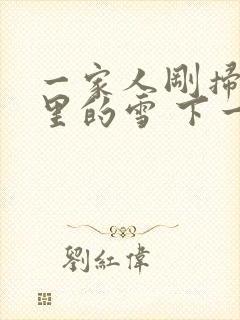 一家人剛掃
里的雪 下一
劉紅偉